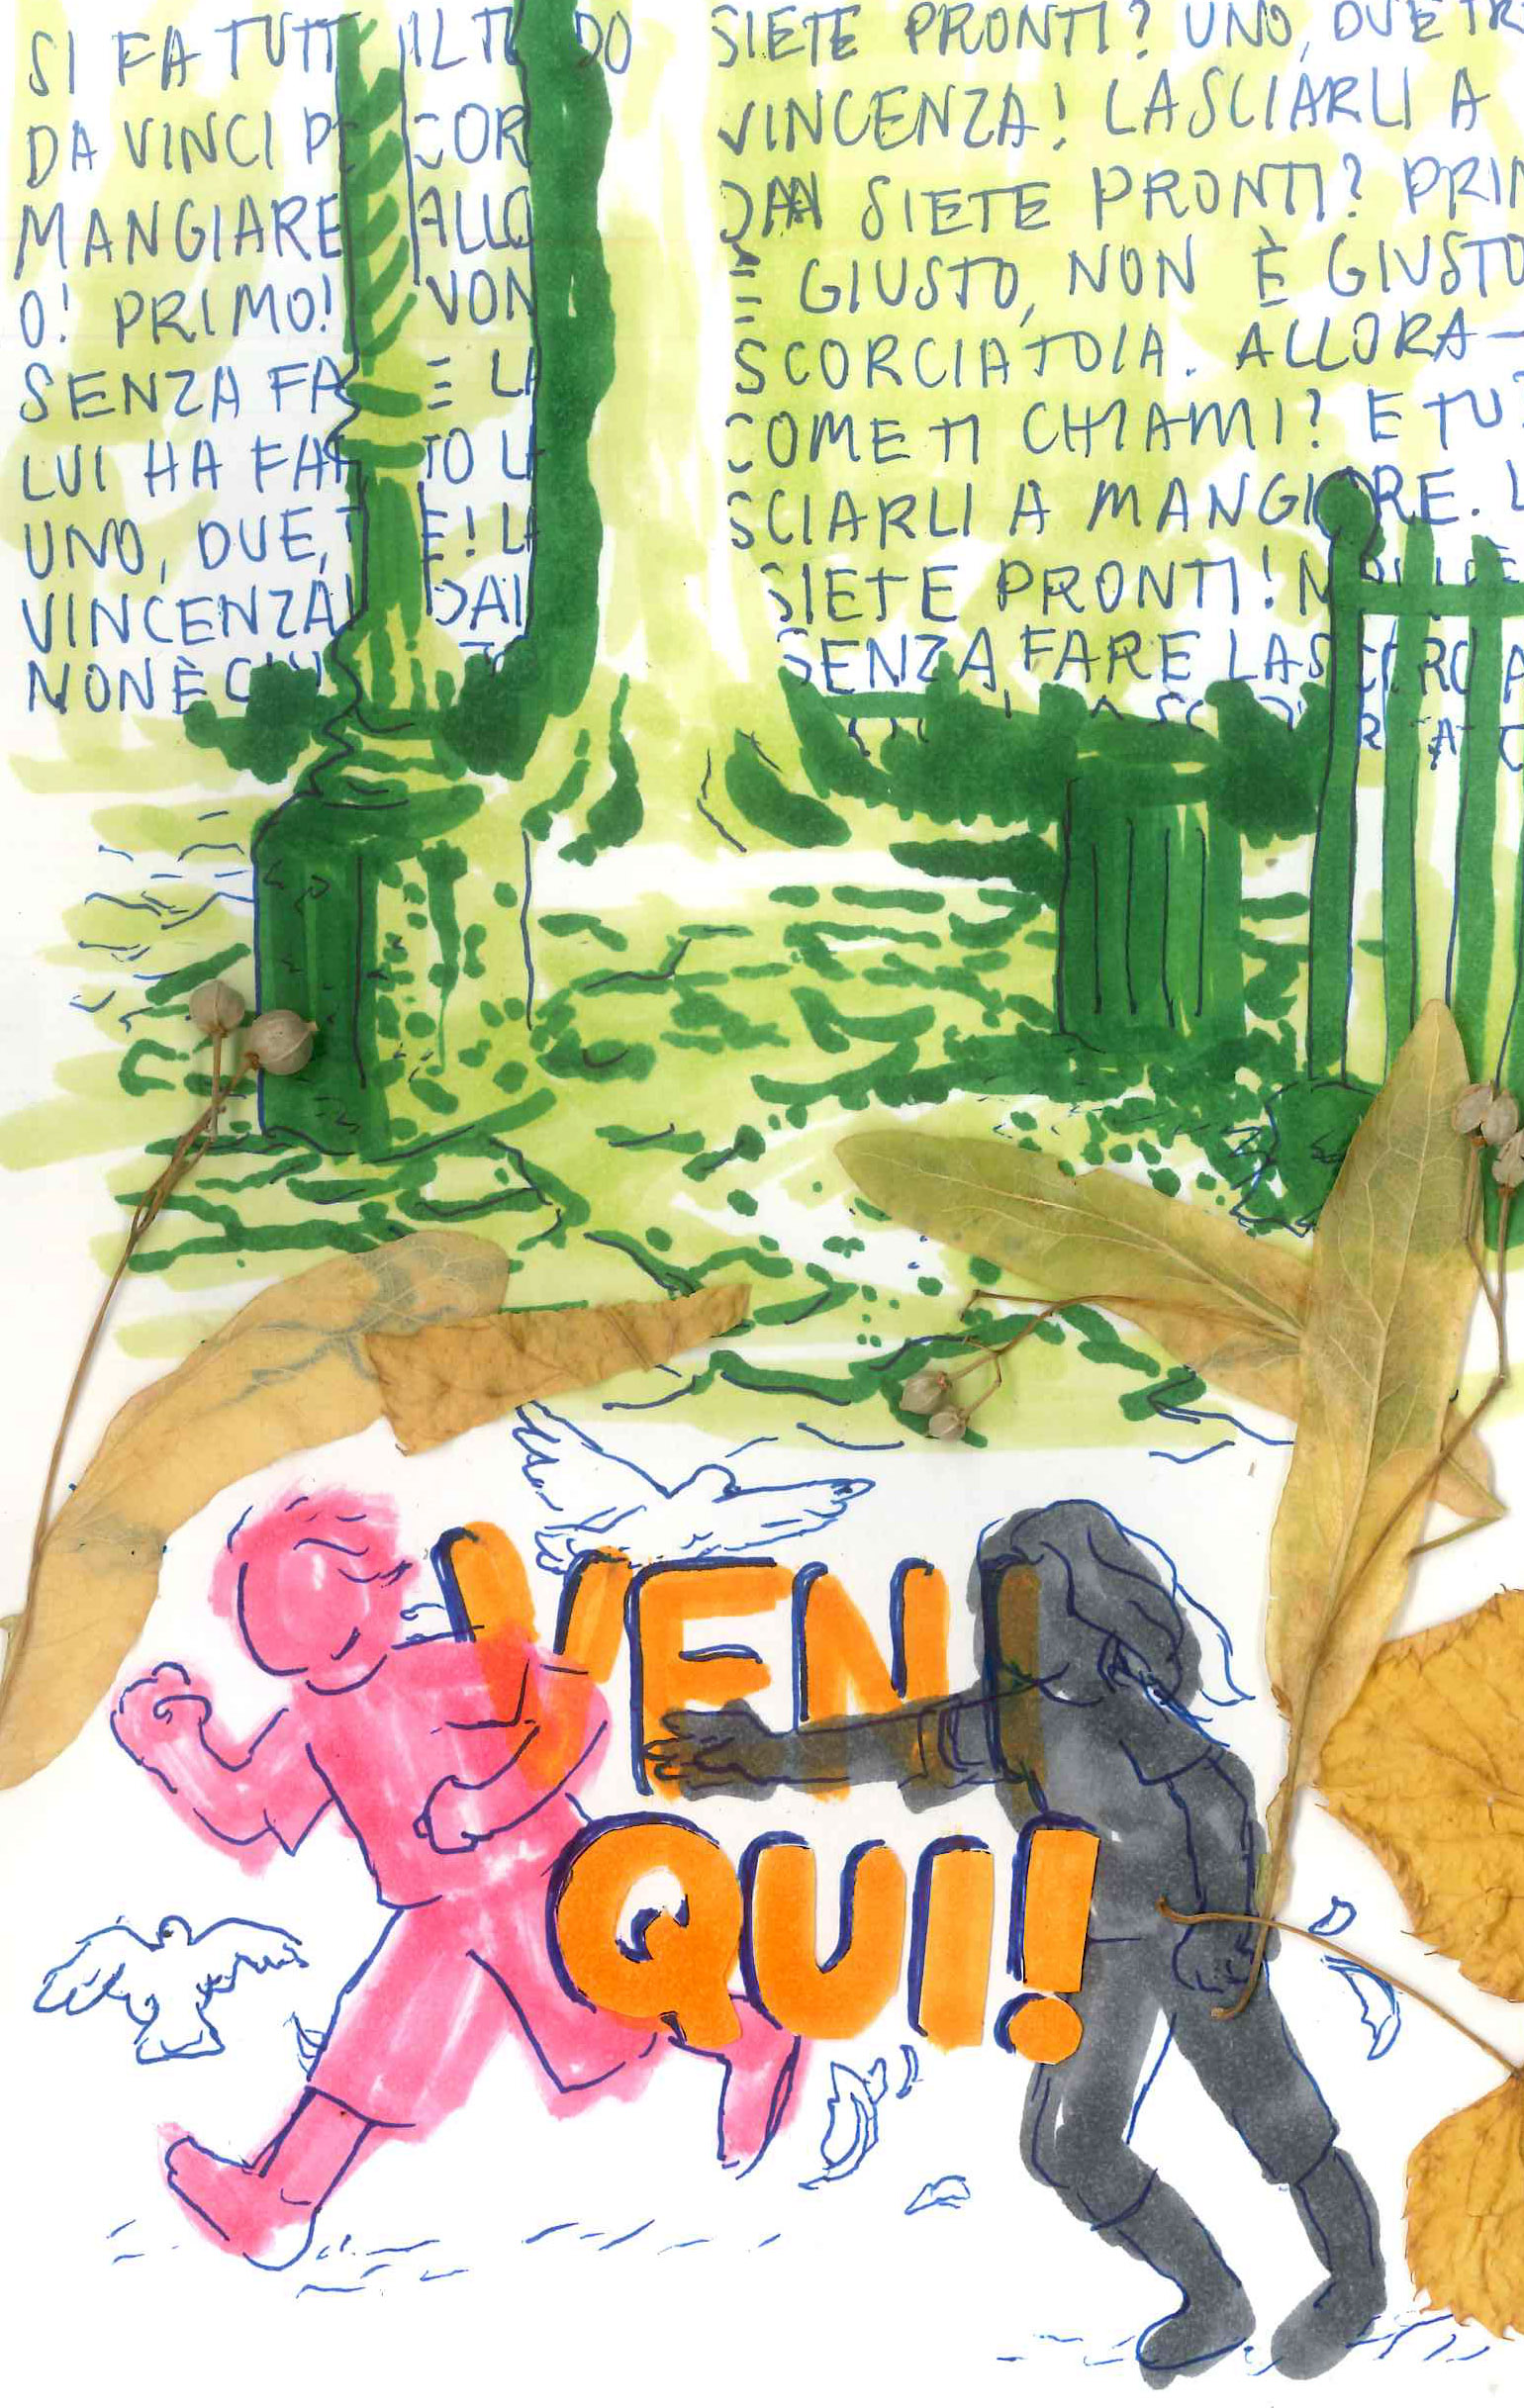 SI FA TUTT IL
DA VINCI
MANGIARE ALLO
O! PRIMO! VON
SENZA FA E LA
LUI HA FA TO LA
UNO, DUE, E! LA
VINCENZA! DAI
NON È
SIETE PRONTI? UNO, DUE TR
VINCENZA! LASCIARLI A
SIETE PRONTI? PRIM
È GIUSTO, NON È GIUSTO
SCORCIATOIA. ALLORA-
COME TI CHIAMI? E TU?
SCIARLI A MANGIARE. L
SIETE PRONTI! N
SENZA FARE LA SCORCIA
VENI
QUI!